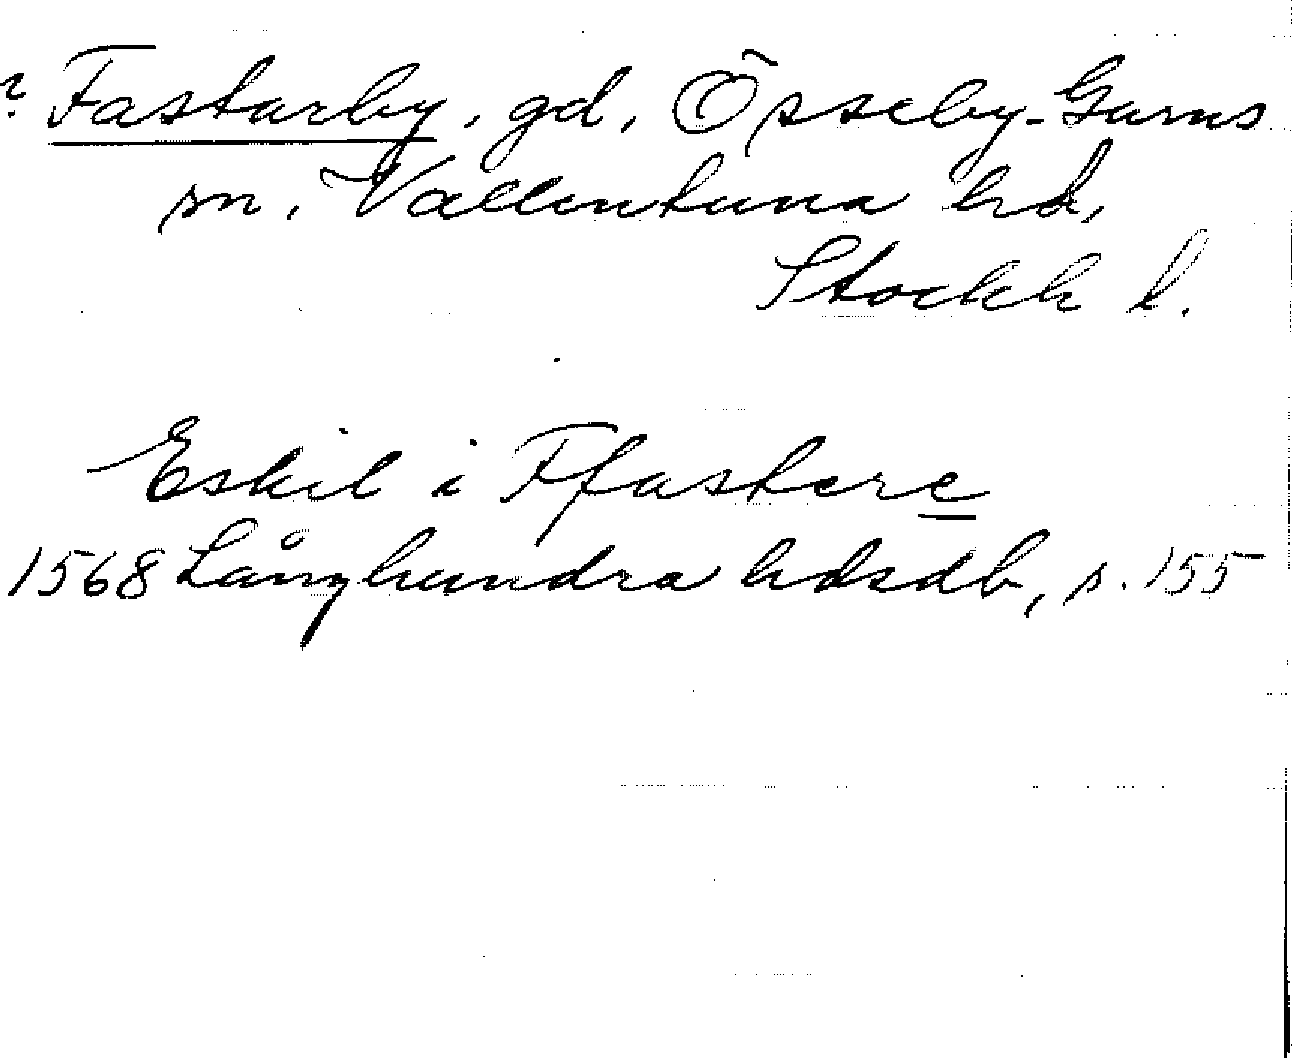 ? Fastarby, gd, Össeby-Garns
sn, Vallentuna hd,
Stockh l.
Eskil i Ffastere
1568 Långhundra hdsdb, s. 155